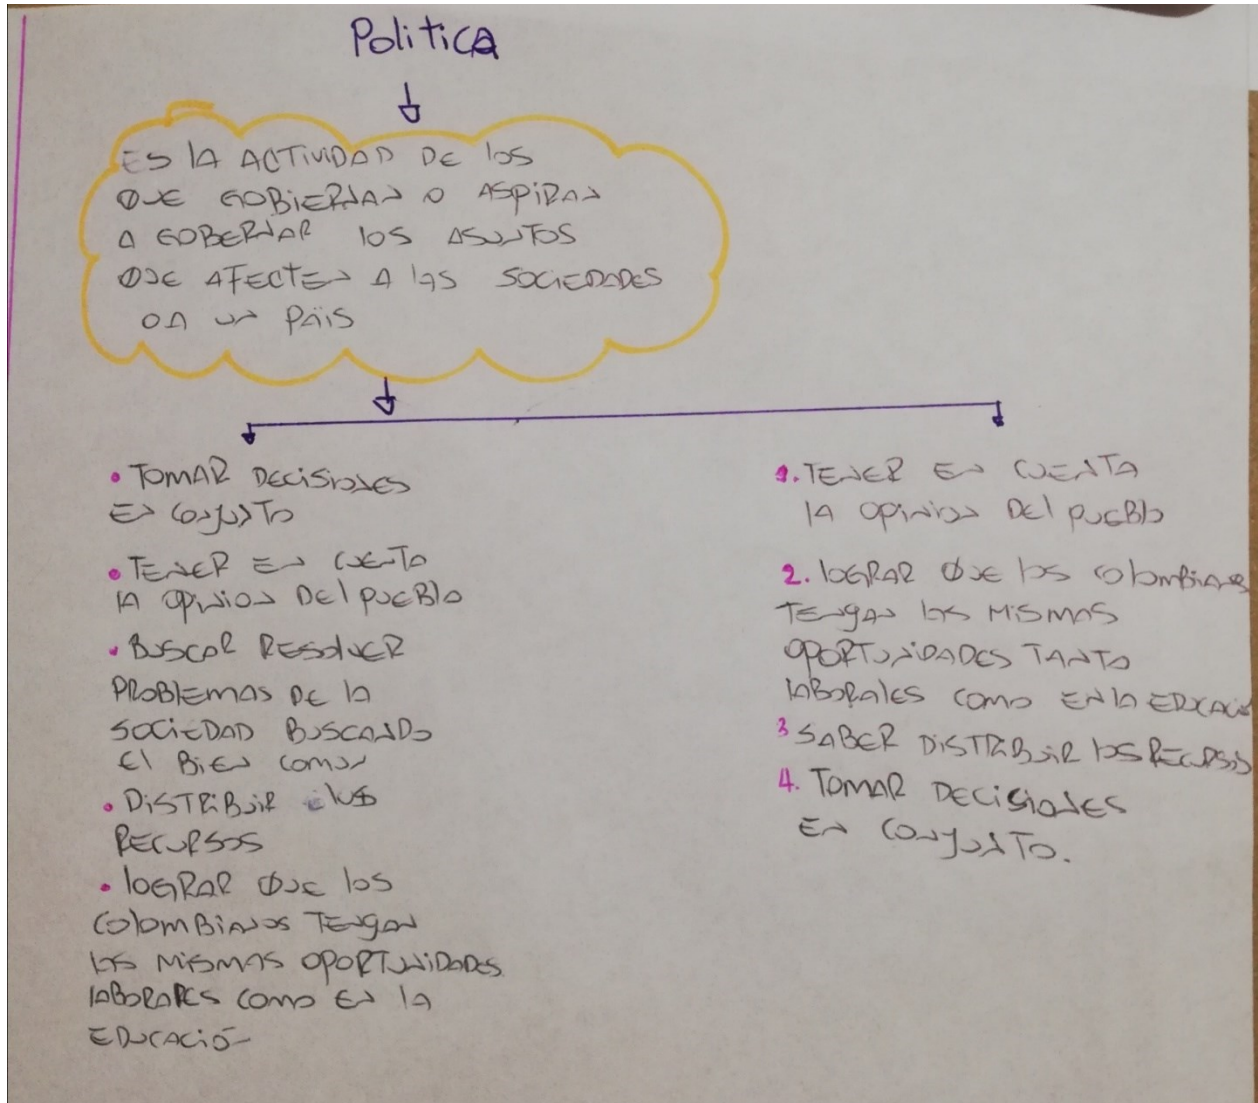 Politica
ES lA ACTIVIDAD DE los
QUE GOBIERNAN O ASPIRAN
A GOBERNAR los ASUNTOS
QUE AFECTEN A las SOCIEDADES
O A UN PAiS
• TOMAR DECiSiONES
EN CONJUNTO
• TENER EN CUENTO
lA OPINION DEl PUEBlO
• BUSCAR RESOlVER
PROBlEMAS DE lA
SOCiEDAD BUSCANDO
El BiEN COMUN
• DiSTRiBUiR lOS
RECURSOS
• lOGRAR QUE lOS
COlOMBiANOS TENGAN
lAS MiSMAS OPORTUNiDADES
lABORARES COMO EN lA
EDUCACiÓN
1. TENER EN CUENTA
lA OPiNiON DEl PUEBlO
2. lOGRAR QUE lOS COlOMBiANOS
TENGAN lAS MiSMAS
OPORTUNiDADES TANTO
lABORAlES COMO EN lA EDUCACiO
3 SABER DiSTRiBUiR lOS RECURSOS
4. TOMAR DECiSiONES
EN CONJUNTO.